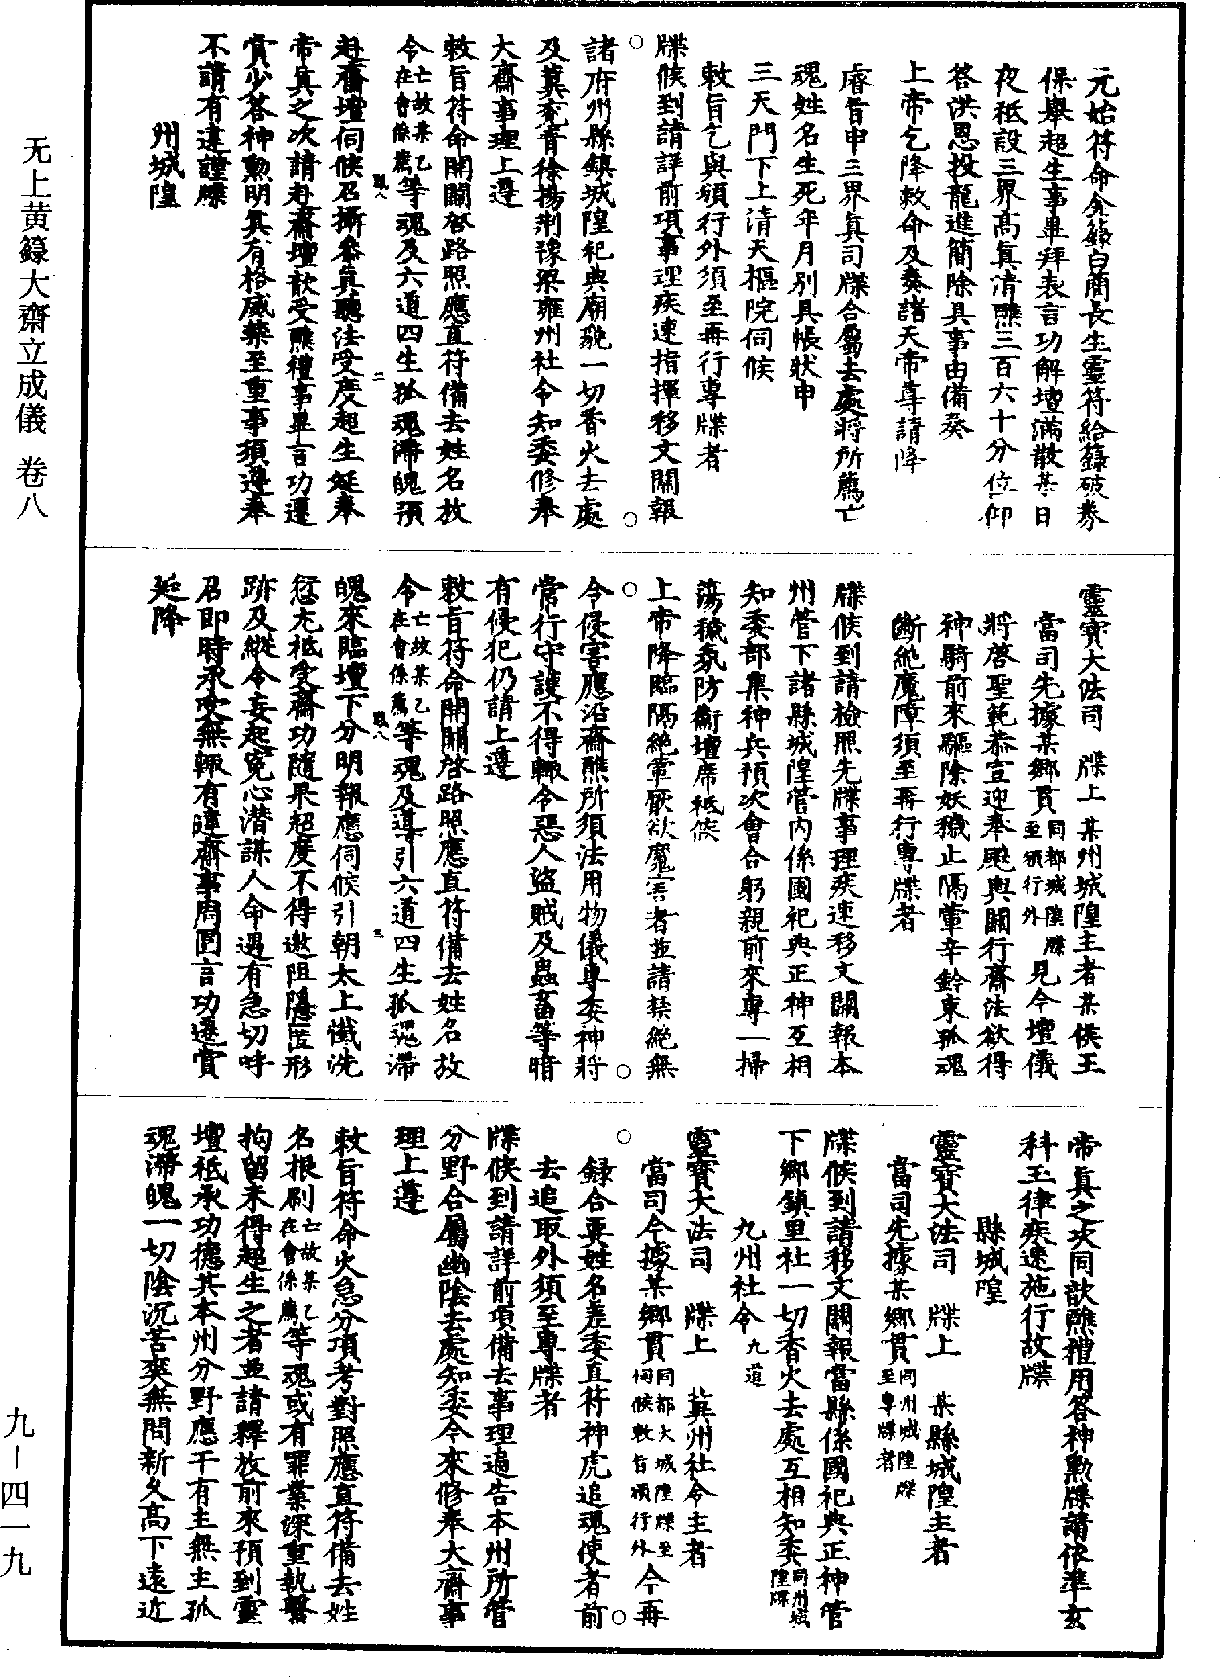 元始符命金籙白簡長生靈符給籙破券
保舉超生事畢拜表言功解壇滿散某日
夜祗設三界高真清醮三百六十分位仰
答洪恩投龍進簡除具事由備奏
上帝乞降敕命及奏諸天帝尊請降
睿旨申三界真司牒合屬去處將所薦亡
魂姓名生死年月别具帳狀申
三天門下上清天樞院伺候
敕旨乞與頒行外須至再行專牒者
牒候到請詳前項事理疾速指揮移文關報
諸府州縣鎮城隍祀典廟貌一切香火去處
及冀兖青徐揚荆豫梁雍州社令知委修奉
大齋事理上遵
敕旨符命開關啓路照應直符備去姓名故
令亡故某乙在會係薦等魂及六道四生孤魂滯魄預
赴齋壇伺候召攝參真聽法受度超生延奉
帝真之次請赴齋壇歆受醮禮事畢言功遷
賞少答神勲明具有格威禁至重事須遵奉
不請有違謹牒
州城隍
靈寶大法司　牒上　某州城隍主者某侯王
當司先據某鄉貫同都城隍牒至頒行外見今壇儀
將啓聖範恭宣迎奉颷輿關行齋法欲得
神騎前來驅除妖穢止隔葷辛鈐束孤魂
斷絶魔障須至再行專牒者
牒候到請檢照先牒事理疾速移文關報本
州管下諸縣城隍管内係國祀典正神互相
知委部集神兵預次會合躬親前來專一掃
蕩穢氛防衛壇席祗候
上帝降臨隔絶葷厭欲魔害者並請禁絶無
令侵害應沿齋醮所須法用物儀專委神將
常行守護不得輙令惡人盜賊及蟲畜等暗
有侵犯仍請上遵
敕旨符命開關啓路照應直符備去姓名故
令亡故某乙在會係薦等魂及導引六道四生孤魂滯
魄來臨壇下分明報應伺候引朝太上懺洗
愆尤祗受齋功隨果超度不得邀阻隱匿形
跡及縱令妄起寃心潛謀人命遇有急切呼
召即時承受無輙有違齋事周圓言功遷賞
延降
帝真之次同歆醮禮用答神勲牒請依準玄
科玉律疾速施行故牒
縣城隍
靈寶大法司　牒上　某縣城隍主者
當司先據某鄉貫同州城隍牒至專牒者
牒候到請移文關報當縣係國祀典正神管
下鄉鎮里社一切香火去處互相知委同州城隍牒
九州社令九道
靈寶大法司　牒上　冀州社令主者
當司今據某鄉貫同都大城隍牒至伺候敕旨頒行外今再
録合要姓名差委直符神虎追魂使者前
去追取外須至專牒者
牒候到請詳前項備去事理遍告本州所管
分野合屬幽陰去處知委令來修奉大齋事
理上遵
敕旨符命火急分項考對照應直符備去姓
名根刷亡故某乙在會係薦等魂或有罪業深重執繫
拘留未得超生之者並請釋放前來預到靈
壇祗承功德其本州分野應干有主無主孤
魂滯魄一切陰沉苦爽無問新久高下遠近
无上黄籙大齋立成儀　卷八
九—四一九